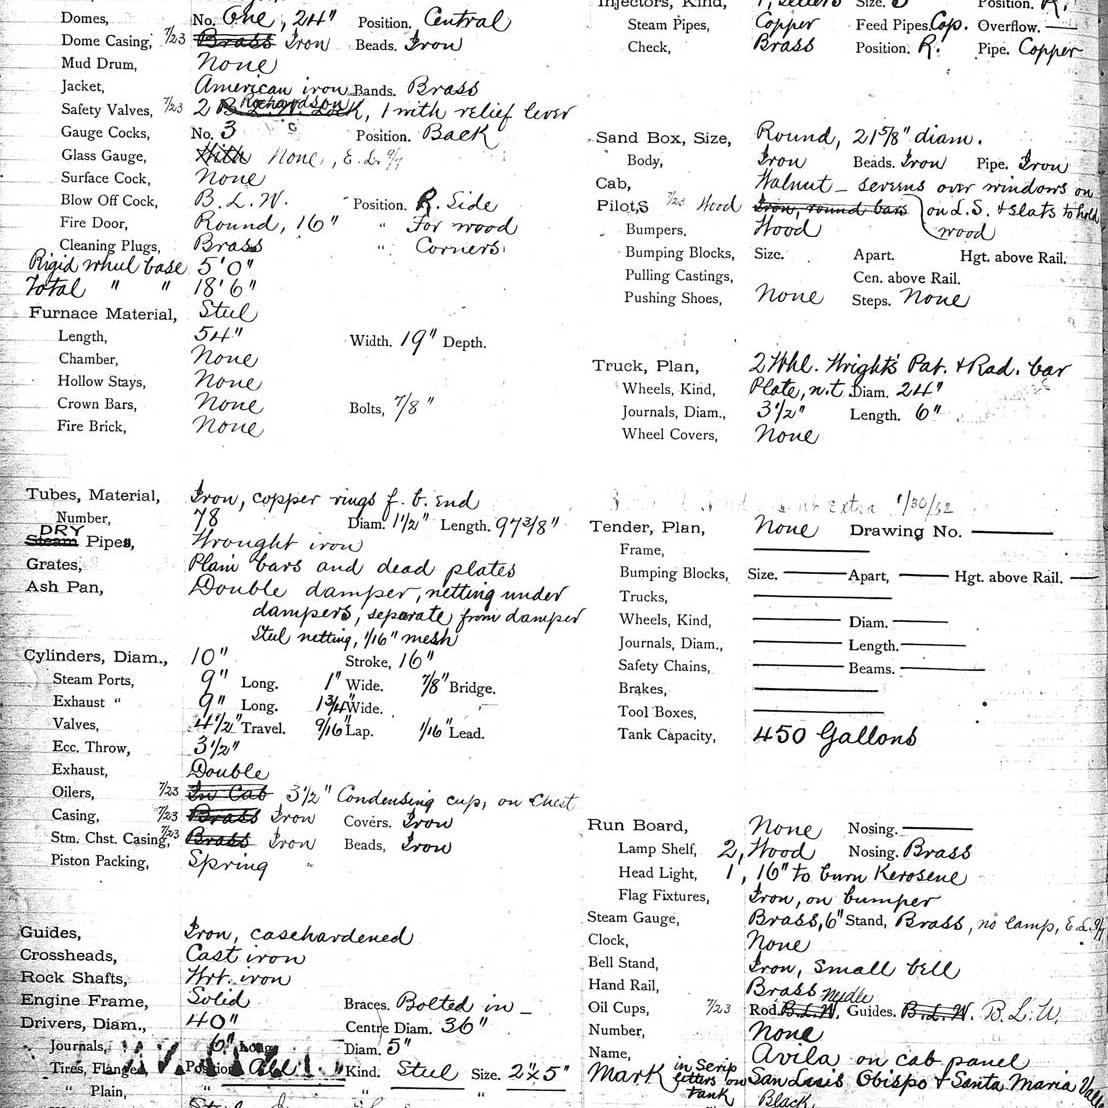 Domes, No. One, 24" Position. Central
Dome Casing, 7/23 Brass Iron Beads. Iron
Mud Drum, None
Jacket, American iron Bands. Brass
Richardson
Safety Valves, 7/23 2 B.L.W. Lock, 1 with relief lever
Gauge Cocks, No. 3 Position. Back
Glass Gauge, With None, E.L. 9/7
Surface Cock, None
Blow Off Cock, B.L.W. Position. R. Side
Fire Door, Round, 16" " For wood
Cleaning Plugs, Brass " Corners
Rigid wheel base 5'0"
Total " " 18'6"
Furnace Material, Steel
Length, 54" Width. 19" Depth.
Chamber, None
Hollow Stays, None
Crown Bars, None Bolts, 7/8"
Fire Brick, None
Tubes, Material, Iron, copper rings f. b. end
Number, 78 Diam. 1 1/2" Length. 97 3/8"
DRY
Steam Pipes, Wrought iron
Grates, Plain bars and dead plates
Ash Pan, Double damper, netting under
dampers, separate from damper
Steel netting, 1/16" mesh
Cylinders, Diam., 10" Stroke, 16"
Steam Ports, 9" Long. 1" Wide. 7/8" Bridge.
Exhaust " 9" Long. 1 3/4" Wide.
Valves, 4 1/2" Travel. 9/16" Lap. 1/16" Lead.
Ecc. Throw, 3 1/2"
Exhaust, Double
Oilers, 7/23 In Cab 3 1/2" Condensing cup, on Chest
Casing, 7/23 Brass Iron Covers. Iron
Stm. Chst. Casing, 7/23 Brass Iron Beads, Iron
Piston Packing, Spring
Guides, Iron, casehardened
Crossheads, Cast iron
Rock Shafts, Wrt. iron
Engine Frame, Solid Braces. Bolted in
Drivers, Diam., 40" Centre Diam. 36"
Journals, 6" Long. Diam. 5"
Tires, Flange Position All Kind. Steel Size. 2" x 5"
" Plain, " " "
Injectors, Kind, 1, Sellers Size. 3 Position. R.
Steam Pipes, Copper Feed Pipes. Cop. Overflow. —
Check, Brass Position. R. Pipe. Copper
Sand Box, Size, Round, 21 5/8" diam.
Body, Iron Beads. Iron Pipe. Iron
Cab, Walnut – screens over windows on
Pilots 7/23 Wood Iron, round bars on L.S. + slats to hold
wood
Bumpers, Wood
Bumping Blocks, Size. Apart. Hgt. above Rail.
Pulling Castings, Cen. above Rail.
Pushing Shoes, None Steps. None
Truck, Plan, 2 Whl. Wright's Pat. + Rad. bar
Wheels, Kind, Plate, n.t. Diam. 24"
Journals, Diam., 3 1/2" Length. 6"
Wheel Covers, None
Extra 1/30/52
Tender, Plan, None Drawing No. —
Frame, —
Bumping Blocks, Size. — Apart, — Hgt. above Rail. —
Trucks, —
Wheels, Kind, — Diam. —
Journals, Diam., — Length. —
Safety Chains, — Beams. —
Brakes, —
Tool Boxes, —
Tank Capacity, 450 Gallons
Run Board, None Nosing. —
Lamp Shelf, 2, Wood Nosing. Brass
Head Light, 1, 16" to burn Kerosene
Flag Fixtures, Iron, on bumper
Steam Gauge, Brass, 6" Stand, Brass, no lamp, E.L. 9/7
Clock, None
Bell Stand, Iron, small bell
Hand Rail, Brass
needle
Oil Cups, 7/23 Rod. B.L.W. Guides. B.L.W. B.L.W.
Number, None
Name, Avila on cab panel
Mark in Scrip letters on tank San Luis Obispo + Santa Maria Valley
Black